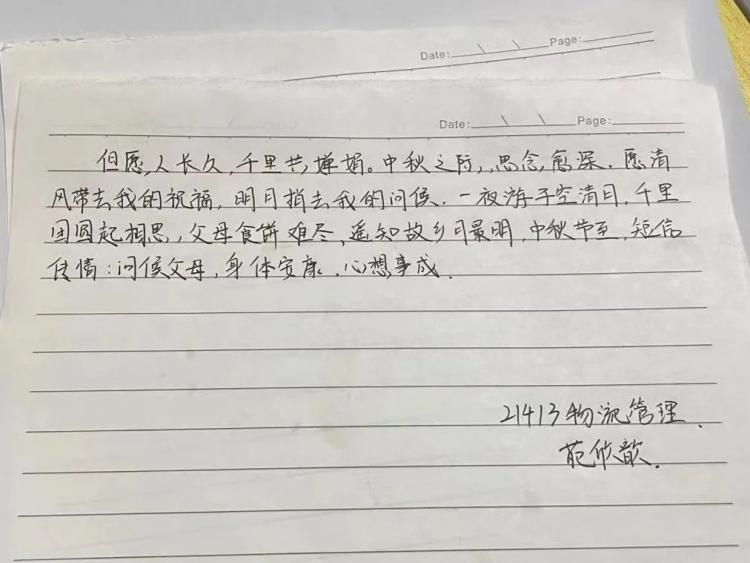 Date: \ \ Page:
Date: \ \ Page:
但愿人长久，千里共婵娟。中秋之际，思念愈深．愿清
风带去我的祝福，明月捎去我的问候．一夜游子空清目，千里
团圆起相思，父母食饼难尽，遥知故乡月最明，中秋节至，短信
传情：问候父母，身体安康．心想事成．
21413物流管理．
范欣歆．